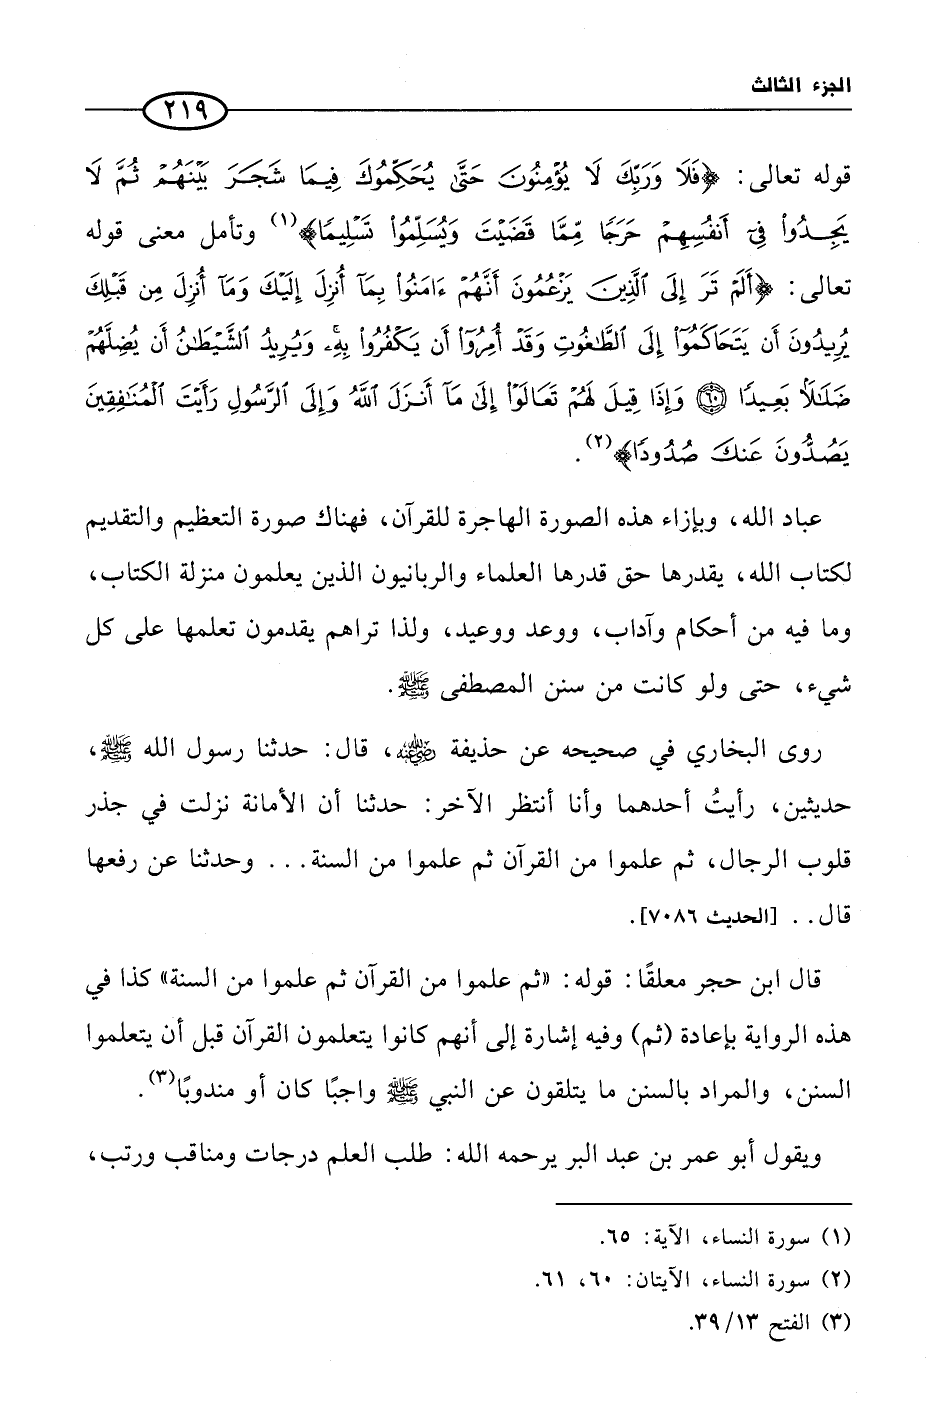 الجزء الثالث
٢١٩
قوله تعالى: ﴿فَلَا وَرَبِّكَ لَا يُؤْمِنُونَ حَتَّىٰ يُحَكِّمُوكَ فِيمَا شَجَرَ بَيْنَهُمْ ثُمَّ لَا
يَجِدُوا۟ فِىٓ أَنفُسِهِمْ حَرَجًا مِّمَّا قَضَيْتَ وَيُسَلِّمُوا۟ تَسْلِيمًا﴾(١) وتأمل معنى قوله
تعالى: ﴿أَلَمْ تَرَ إِلَى ٱلَّذِينَ يَزْعُمُونَ أَنَّهُمْ ءَامَنُوا۟ بِمَآ أُنزِلَ إِلَيْكَ وَمَآ أُنزِلَ مِن قَبْلِكَ
يُرِيدُونَ أَن يَتَحَاكَمُوٓا۟ إِلَى ٱلطَّٰغُوتِ وَقَدْ أُمِرُوٓا۟ أَن يَكْفُرُوا۟ بِهِۦۖ وَيُرِيدُ ٱلشَّيْطَٰنُ أَن يُضِلَّهُمْ
ضَلَٰلًۢا بَعِيدًا ۝٦٠ وَإِذَا قِيلَ لَهُمْ تَعَالَوْا۟ إِلَىٰ مَآ أَنزَلَ ٱللَّهُ وَإِلَى ٱلرَّسُولِ رَأَيْتَ ٱلْمُنَٰفِقِينَ
يَصُدُّونَ عَنكَ صُدُودًا﴾(٢).
عباد الله، وبإزاء هذه الصورة الهاجرة للقرآن، فهناك صورة التعظيم والتقديم
لكتاب الله، يقدرها حق قدرها العلماء والربانيون الذين يعلمون منزلة الكتاب،
وما فيه من أحكام وآداب، ووعد ووعيد، ولذا تراهم يقدمون تعلمها على كل
شيء، حتى ولو كانت من سنن المصطفى ﷺ.
روى البخاري في صحيحه عن حذيفة رضي الله عنه، قال: حدثنا رسول الله ﷺ،
حديثين، رأيتُ أحدهما وأنا أنتظر الآخر: حدثنا أن الأمانة نزلت في جذر
قلوب الرجال، ثم علموا من القرآن ثم علموا من السنة... وحدثنا عن رفعها
قال.. [الحديث ٧٠٨٦].
قال ابن حجر معلقًا: قوله: «ثم علموا من القرآن ثم علموا من السنة» كذا في
هذه الرواية بإعادة (ثم) وفيه إشارة إلى أنهم كانوا يتعلمون القرآن قبل أن يتعلموا
السنن، والمراد بالسنن ما يتلقون عن النبي ﷺ واجبًا كان أو مندوبًا(٣).
ويقول أبو عمر بن عبد البر يرحمه الله: طلب العلم درجات ومناقب ورتب،
(١) سورة النساء، الآية: ٦٥.
(٢) سورة النساء، الآيتان: ٦٠، ٦١.
(٣) الفتح ٣٩/١٣.